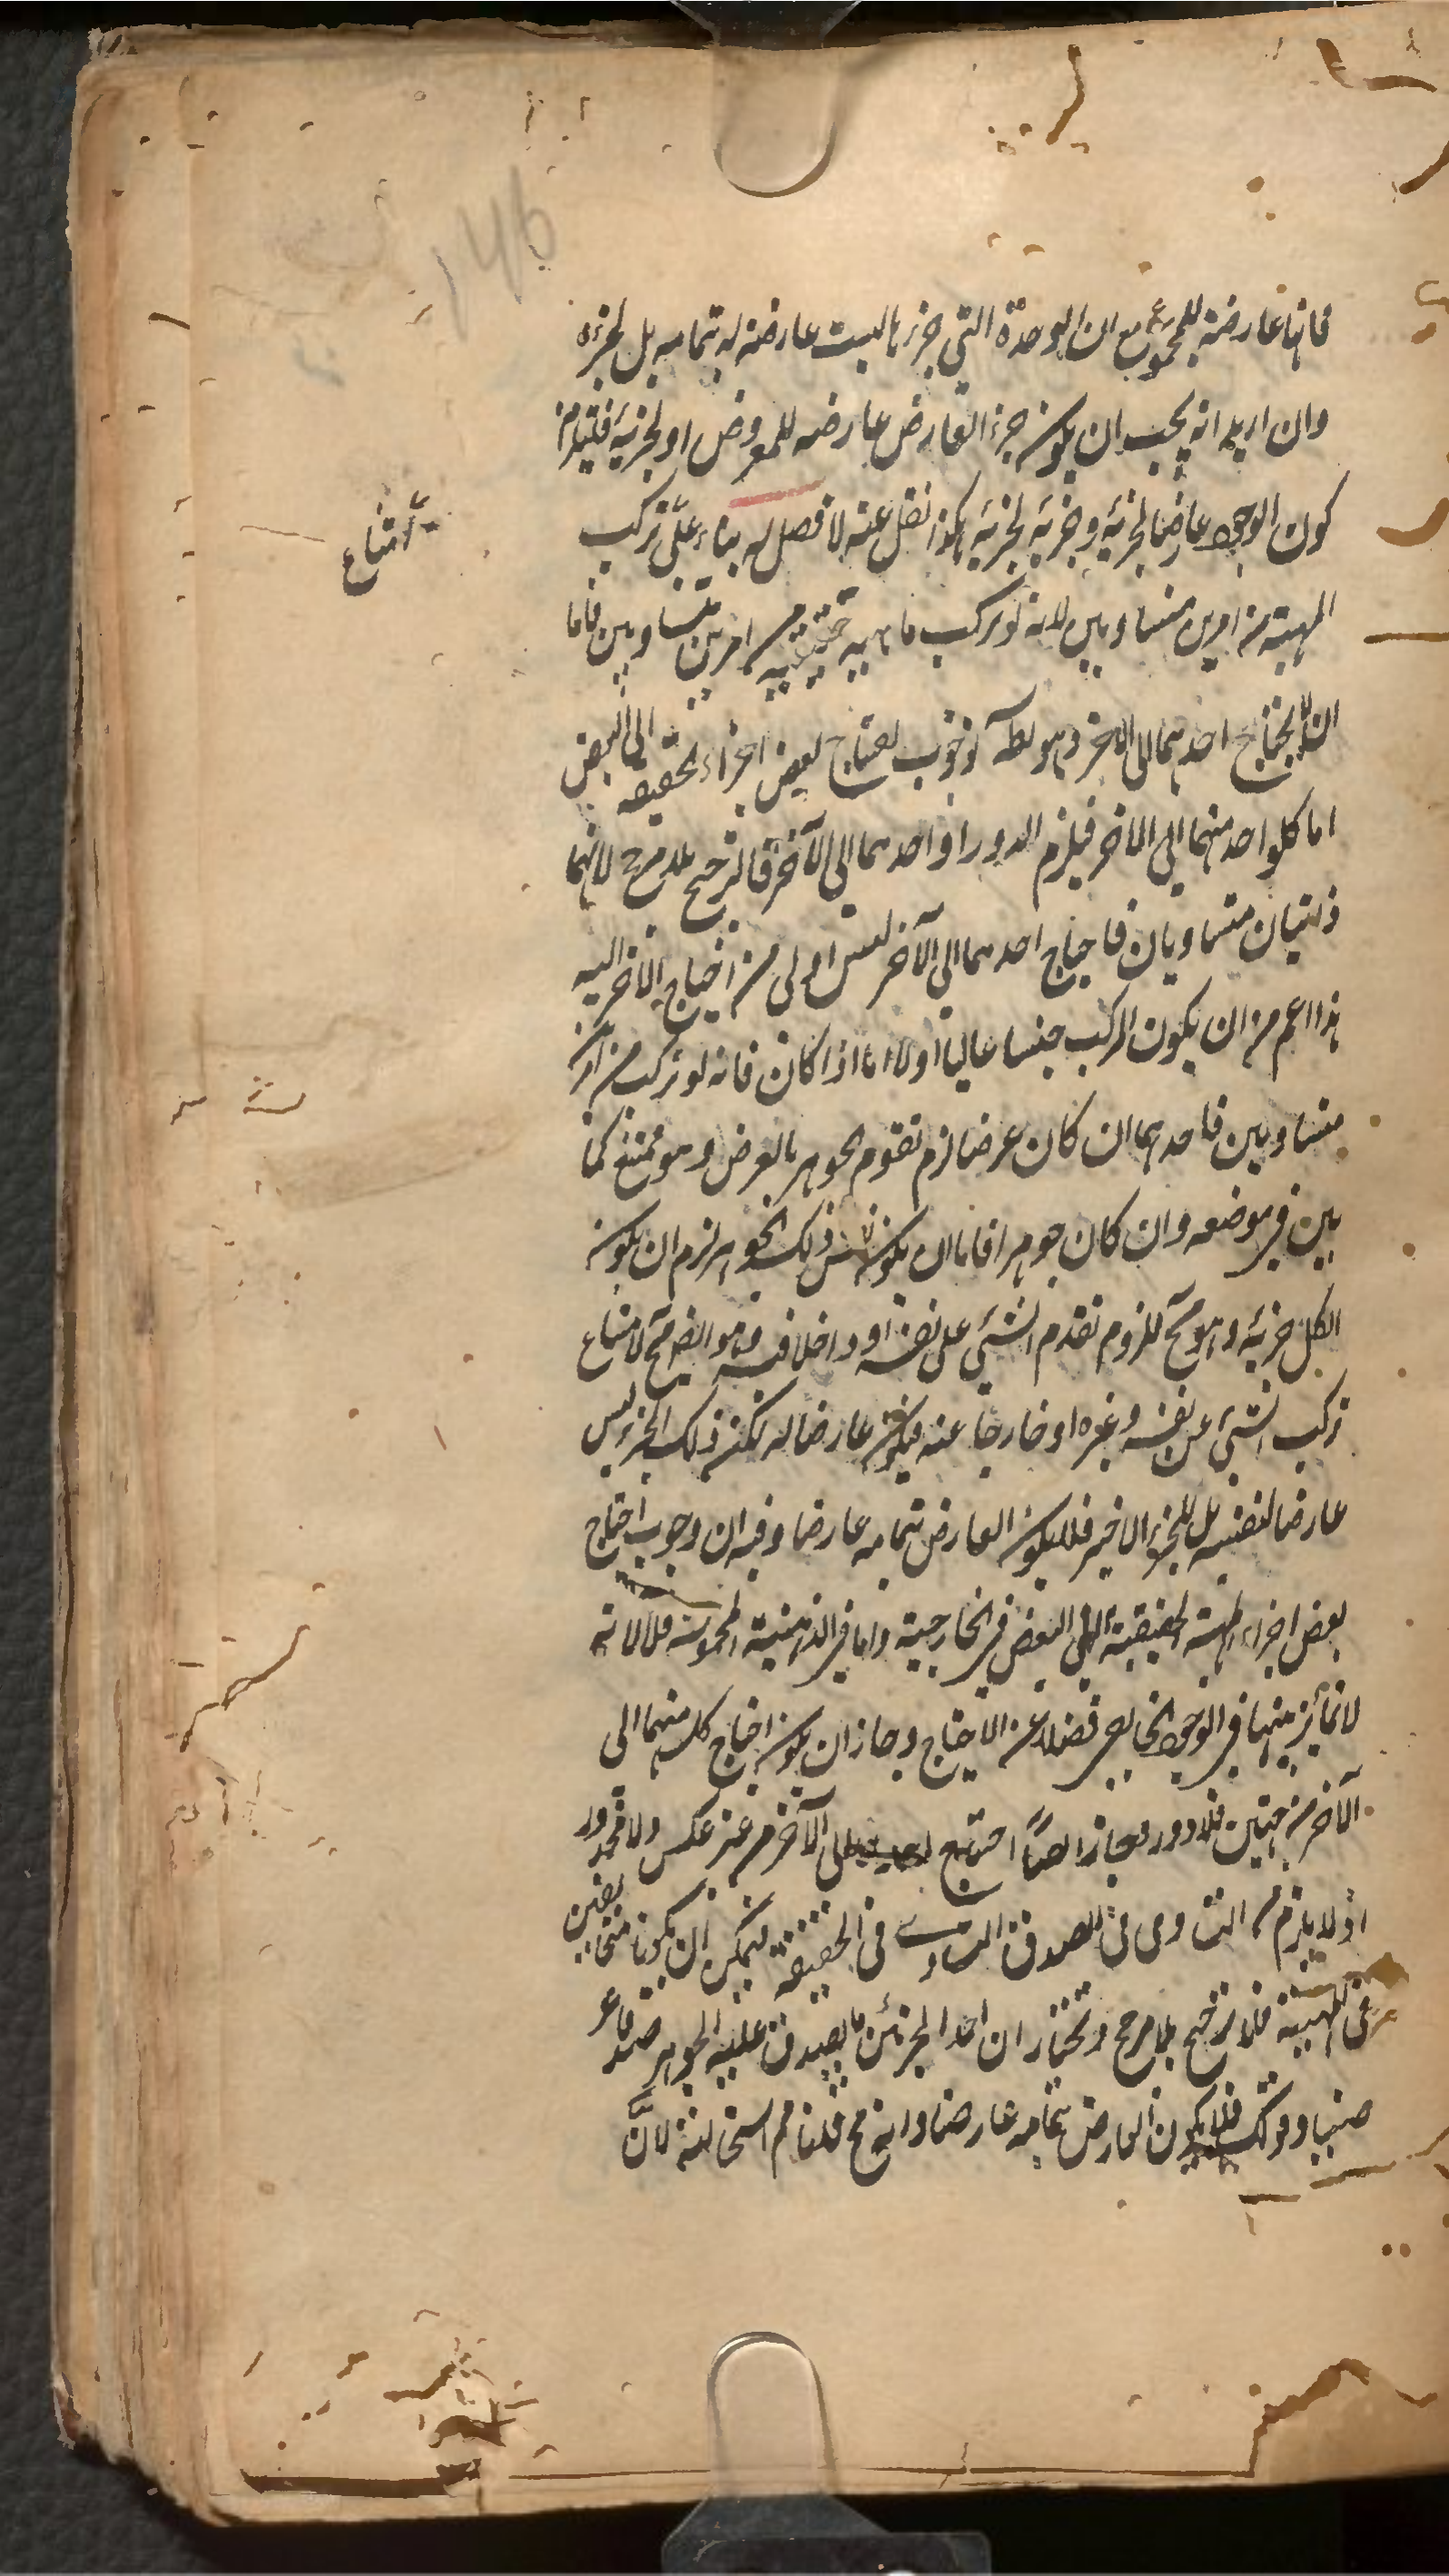 فانها عارضة للمجموع مع ان الوحدة التي جزؤها ليست عارضة له بتمامه بل لجزءه
وان اريد انه يجب ان يكون جزء العارض عارضه للمعروض او لجزئه فليلزم
كون الوجود عارضا لجزئه وجزئه لجزئه هكذا نقل عنه لا فصل له بناء على تركب
امتناع
المهية من امرين متساويين لانه لو تركب ماهيه حقيقيه من امرين متساويين فاما
ان لا يحتاج احدهما الى الاخر وهو بط لوجوب احتياج بعض اجزاء الحقيقه الى البعض
اما كلواحد منهما الى الاخر فيلزم الدور او احدهما الى الآخر فالترجيح بلا مرجح لانهما
ذاتيان متساويان فاحتياج احدهما الى الآخر ليس اولى من احتياج الآخر اليه
هذا اعم من ان يكون المركب جنسا عاليا او لا اما اذا كان فانه لو تركب من امرين
متساويين فاحدهما ان كان عرضا لزم تقوم الجوهر بالعرض وهو ممتنع كما
بين في موضعه وان كان جوهرا فاما ان يكون نفس ذلك الجوهر لزم ان يكون
الكل جزئه وهو مح للزوم تقدم الشئ على نفسه او داخلا فيه وهو ايضا مح لامتناع
تركب الشئ عن نفسه وغيره او خارجا عنه فيكون عارضا له لكن ذلك الجزء ليس
عارضا لنفسه بل للجزء الاخير فلا يكون العارض بتمامه عارضا وفيه ان وجوب احتياج
بعض اجزاء المهية الحقيقية الى البعض في الخارجية واما في الذهنية المحمولة فلا لانه
لا تمايز بينها في الوجود الخارجي فضلا عن الاحتياج وجاز ان يكون احتياج كل منهما الى
الآخر من جهتين فلا دور وجاز ايضا احتياج الى الآخر من غير عكس ولا محذور
اذ لا يلزم من التساوي في الصدق التساوي في الحقيقة فيمكن ان يكونا مختلفين
في المهية فلا ترجيح بلا مرجح ونختار ان احد الجزئين ما يصدق عليه الجوهر صدقا عر
ضيا وقولك فلا يكون العارض بتمامه عارضا وانه مح قلنا مم استحالته لانَّ